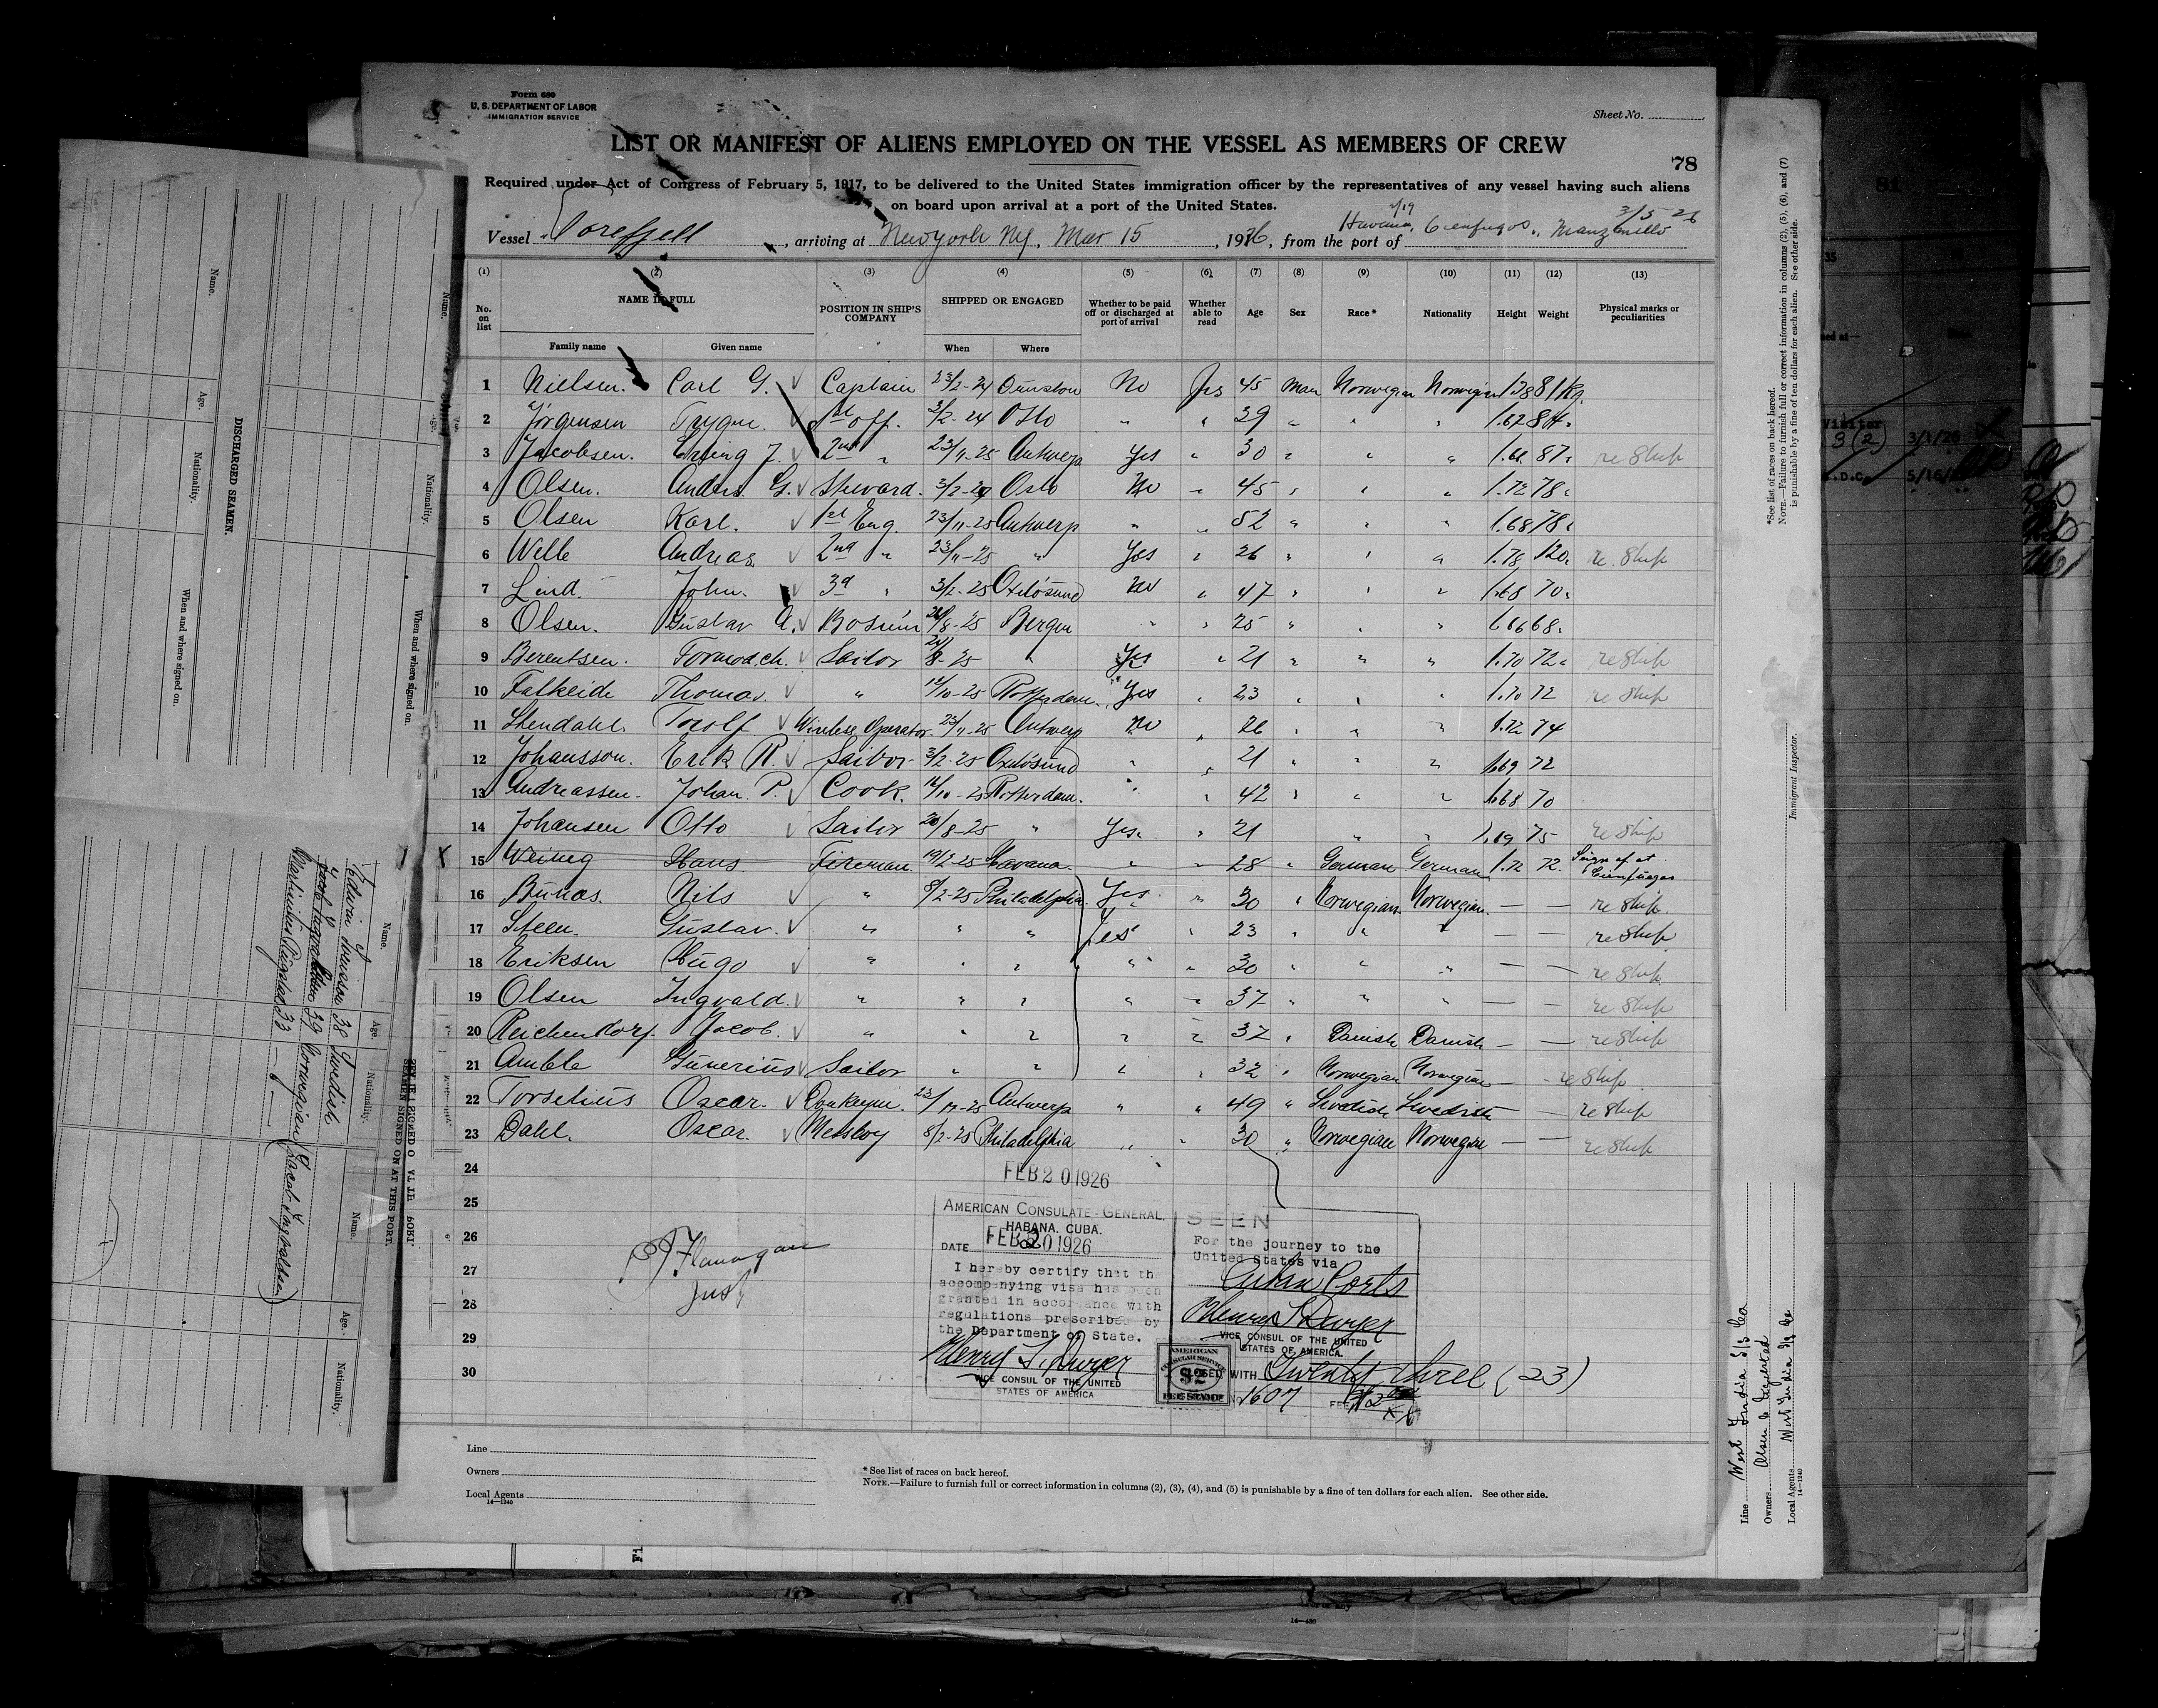 Form 680
U. S. DEPARTMENT OF LABOR
IMMIGRATION SERVICE
Sheet No.
LIST OR MANIFEST OF ALIENS EMPLOYED ON THE VESSEL AS MEMBERS OF CREW
78
Required under Act of Congress of February 5, 1917, to be delivered to the United States immigration officer by the representatives of any vessel having such aliens
on board upon arrival at a port of the United States.
Vessel Noreffjell, arriving at New york NY, Mar 15, 1926, from the port of Havana, Cienfuegos, Manzanillo 3/5 26
(1) (2) (3) (4) (5) (6) (7) (8) (9) (10) (11) (12) (13)
No. on list NAME IN FULL POSITION IN SHIP'S COMPANY SHIPPED OR ENGAGED Whether to be paid off or discharged at port of arrival Whether able to read Age Sex Race* Nationality Height Weight Physical marks or peculiarities
Family name Given name When Where
1 Nielsen. Carl G. Captain 23/2-24 No Yes 45 Man Norwegian Norwegian 81 Kg.
2 Jörgensen Trygve. 1st off. 3/2-24 Oslo " " 39 " " " 1.67 84 "
3 Jacobsen. Erling J. 2nd " 23/11-25 Antwerp Yes " 30 " " " 87 " re Ship
4 Olsen. Anders G. Steward. Oslo No " 45 " " " 1.72 78 "
5 Olsen Karl. 1st Eng. 23/11-25 Antwerp " " 52 " " " 1.68 78 "
6 Welle Andreas. 2nd " 23/11-25 " Yes " 26 " " " 1.78 120. re Ship
7 Lind. John. 3d " 3/2-25 Oxelösund No " 47 " " " 1.68 70 "
8 Olsen. Gustav A. Bosun 8-25 Bergen " " 25 " " " 1.66 68 "
9 Berentsen. Tormod. ch. Sailor 8-25 " Yes " 21 " " " 1.70 72 " re Ship
10 Falkeide Thomas. " 10-25 Rotterdam. Yes " 23 " " " 1.70 72 re Ship
11 Stendahl. Torolf Wireless Operator 23/11-25 Antwerp No " 26 " " " 1.72 74
12 Johansson. Erik R. Sailor 3/2-25 Oxelösund " " 21 " " " 1.69 72
13 Andreassen. Johan P. Cook. 16/10-25 Rotterdam. " " 42 " " " 1.68 70
14 Johansen Otto Sailor 20/8-25 " Yes. " 21 " " 1.69 75 re Ship
15 Hans Fireman. 19/2-25 Havana. " " 28 " German German 1.72 72. Sign of at Cienfuegos
16 Nils " 8/2-25 Philadelphia. Yes. " 30 " Norwegian. Norwegian. — — re Ship.
17 Steen. Gustav. " " " Yes " 23 " " " — — re Ship
18 Eriksen Hugo " " " " " 30 " " " — — re Ship
19 Olsen Ingvald. " " " " " 37 " " " — — re Ship
20 Reichendorf. Jacob. " " " " " 37 " Danish Danish — — re Ship
21 Amble Gunerius Sailor " " " " 32 " Norwegian Norwegian — - re Ship
22 Torselius Oscar. Donkeym. Antwerp " " 49 " Swedish Swedish — — re Ship
23 Dahl. Oscar. Messboy 8/2-25 Philadelphia " " 30 " Norwegian Norwegian — — re Ship
24
FEB 20 1926
25
AMERICAN CONSULATE-GENERAL,
HABANA, CUBA.
26
DATE FEB 20 1926
27
I hereby certify that th
accompanying visa has been
28
granted in accordance with
regulations prescribed by
29
the Department of State.
Henry T. Dwyer
30
VICE CONSUL OF THE UNITED
STATES OF AMERICA
SEEN
For the journey to the
United States via
Cuban Ports
Henry T. Dwyer
VICE CONSUL OF THE UNITED
STATES OF AMERICA.
CLOSED WITH Twenty three (23)
No 1607 FEE
AMERICAN
CONSULAR SERVICE
$2
FEE STAMP
Flanagan
Insp
Line
Owners
Local Agents
14—1240
* See list of races on back hereof.
NOTE.—Failure to furnish full or correct information in columns (2), (3), (4), and (5) is punishable by a fine of ten dollars for each alien. See other side.
DISCHARGED SEAMEN.
Name. Age. Nationality. When and where signed on.
Name. Age. Nationality. When and where signed on.
SEAMEN SIGNED ON AT THIS PORT.
Name. Age. Nationality. Name. Age. Nationality.
Edwin Svenson 38 Swedish
39 Norwegian (Jacob Ingvaldsen)
Martinius 33 — " —
*See list of races on back hereof.
NOTE.—Failure to furnish full or correct information in columns (2), (5), (6), and (7)
is punishable by a fine of ten dollars for each alien. See other side.
Immigrant Inspector.
Line West India S/S Co
Owners Olsen & Ugelstad
Local Agents West India S/S Co
14—1240
81
35
Visitor
3 (2) 3/1/26
14—430